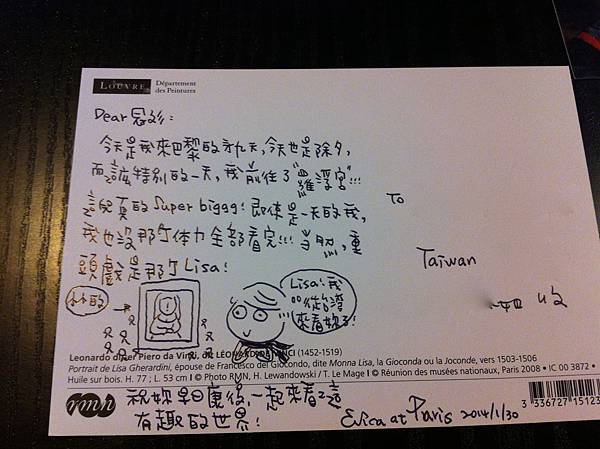 LOUVRE
Département
des Peintures
Dear
今天是我來巴黎的第九天,今天也是除夕,
而這特別的一天,我前往了"羅浮宮"!!!
這兒真的Super bigggg!即使是一天的我,
我也沒那個体力全部看完!!!當然,重
頭戲是那個Lisa!
小小的
Lisa!我
從台灣
來看妳了!
To
Taiwan
收
Leonardo di ser Piero da Vinci, dit LÉONARD DE VINCI (1452-1519)
Portrait de Lisa Gherardini, épouse de Francesco del Giocondo, dite Monna Lisa, la Gioconda ou la Joconde, vers 1503-1506
Huile sur bois. H. 77 ; L. 53 cm I © Photo RMN, H. Lewandowski / T. Le Mage I © Réunion des musées nationaux, Paris 2008 • IC 00 3872 •
rmn
祝妳早日康復,一起來看看這
有趣的世界!
Erica at Paris 2014/1/30
3 336727 15123